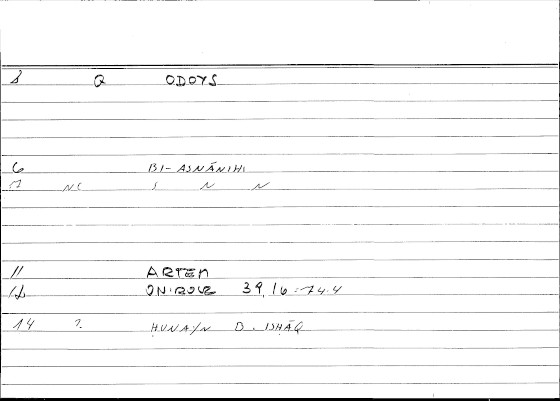 8 Q ODOYS
6 BI-ASNĀNIHI
7 NE S N N
11 ARTEM
12 ONIROCR 39,16 = 74.4
14 2. ḤUNAYN B. ISḤĀQ